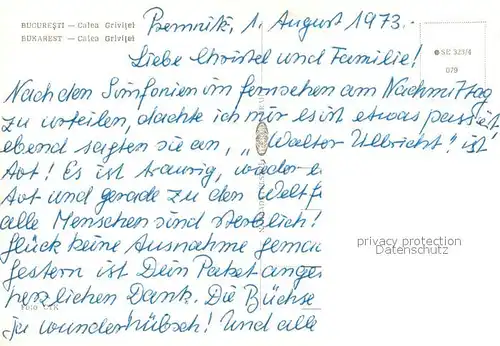 BUCUREȘTI — Calea Griviței
BUKAREST — Calea Griviței
Premnitz, 1. August 1973.
Liebe Christel und Familie!
SE 323/4
079
Nach den Sinfonien im fernsehen am Nachmittag
zu urteilen, dachte ich mir es ist etwas passiert
ebend sagten sie an, „Walter Ulbricht" ist
tot! Es ist traurig,
tot und gerade zu den Weltf
alle Menschen sind sterblich!
Glück keine Ausnahme gemac
Gestern ist Dein Paket angek
herzlichen Dank. Die Büchse
ja wunderhübsch! Und alle
privacy protection
Datenschutz